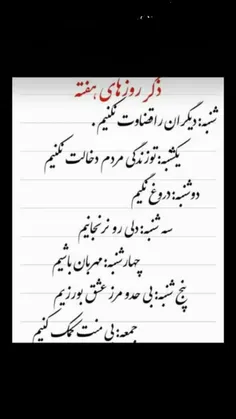 ذکر روزهای هفته
شنبه: دیگران را قضاوت نکنیم .
یکشبه: تو زندگی مردم دخالت نکنیم
دوشنبه: دروغ نگیم
سه شنبه: دلی رو نرنجانیم
چهارشنبه: مهربان باشیم
پنج شنبه: بی حدو مرز عشق بورزیم
جمعه: بی منت کمک کنیم